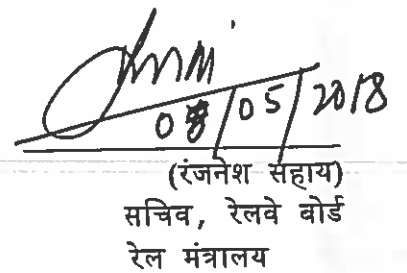 08/05/2018
(रंजनेश सहाय)
सचिव, रेलवे बोर्ड
रेल मंत्रालय